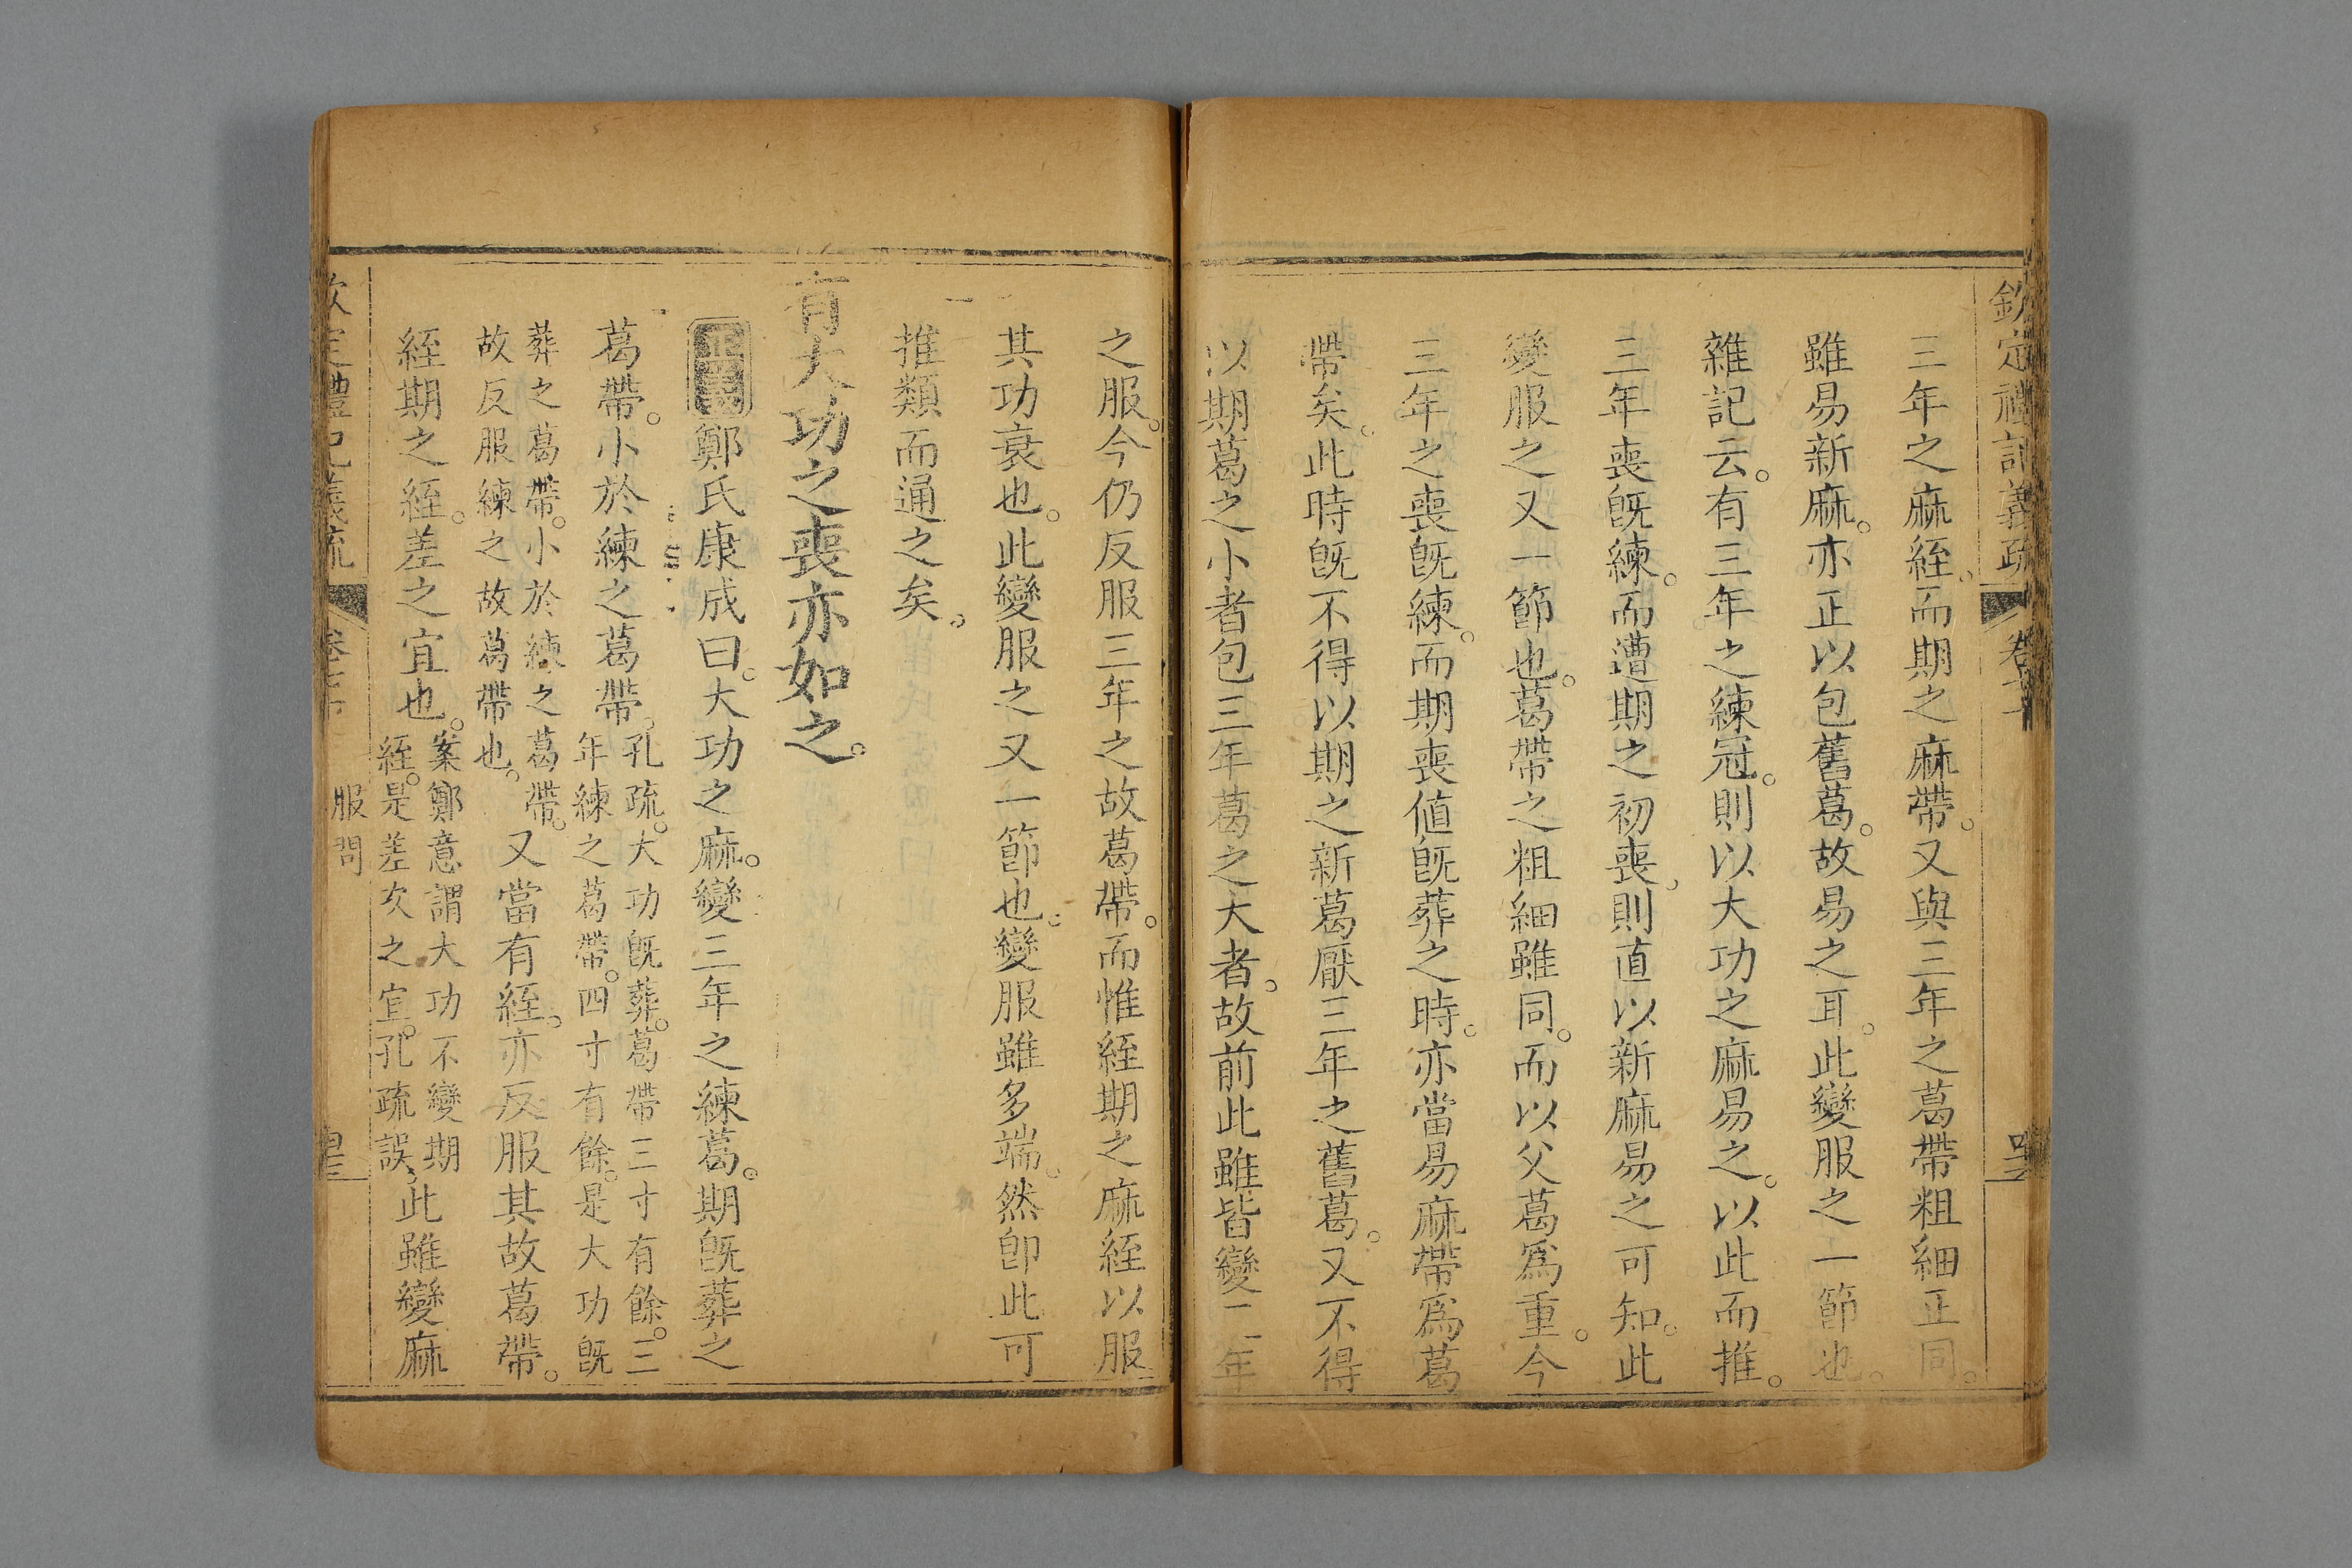 欽定禮記義疏 卷七十
三年之麻絰。而期之麻帶。又與三年之葛帶粗細正同。
雖易新麻。亦正以包舊葛。故易之耳。此變服之一節也。
雜記云。有三年之練冠。則以大功之麻易之。以此而推。
三年喪既練。而遭期之初喪。則直以新麻易之可知。此
變服之又一節也。葛帶之粗細雖同。而以父葛爲重。今
三年之喪既練。而期喪値既葬之時。亦當易麻帶爲葛
帶矣。此時既不得以期之新葛厭三年之舊葛。又不得
以期葛之小者包三年葛之大者。故前此雖皆變三年
之服。今仍反服三年之故葛帶。而惟絰期之麻絰以服
其功衰也。此變服之又一節也。變服雖多端。然卽此可
推類而通之矣。
有大功之喪亦如之。
正義鄭氏康成曰。大功之麻。變三年之練葛。期既葬之
葛帶。小於練之葛帶。孔疏。大功既葬。葛帶三寸有餘。三
年練之葛帶。四寸有餘。是大功既
葬之葛帶。小於練之葛帶。
故反服練之故葛帶也。又當有絰。亦反服其故葛帶。
絰期之絰。差之宜也。案鄭意謂大功不變期
絰。是差次之宜。孔疏誤。此雖變麻
欽定禮記義疏 卷七十 服問